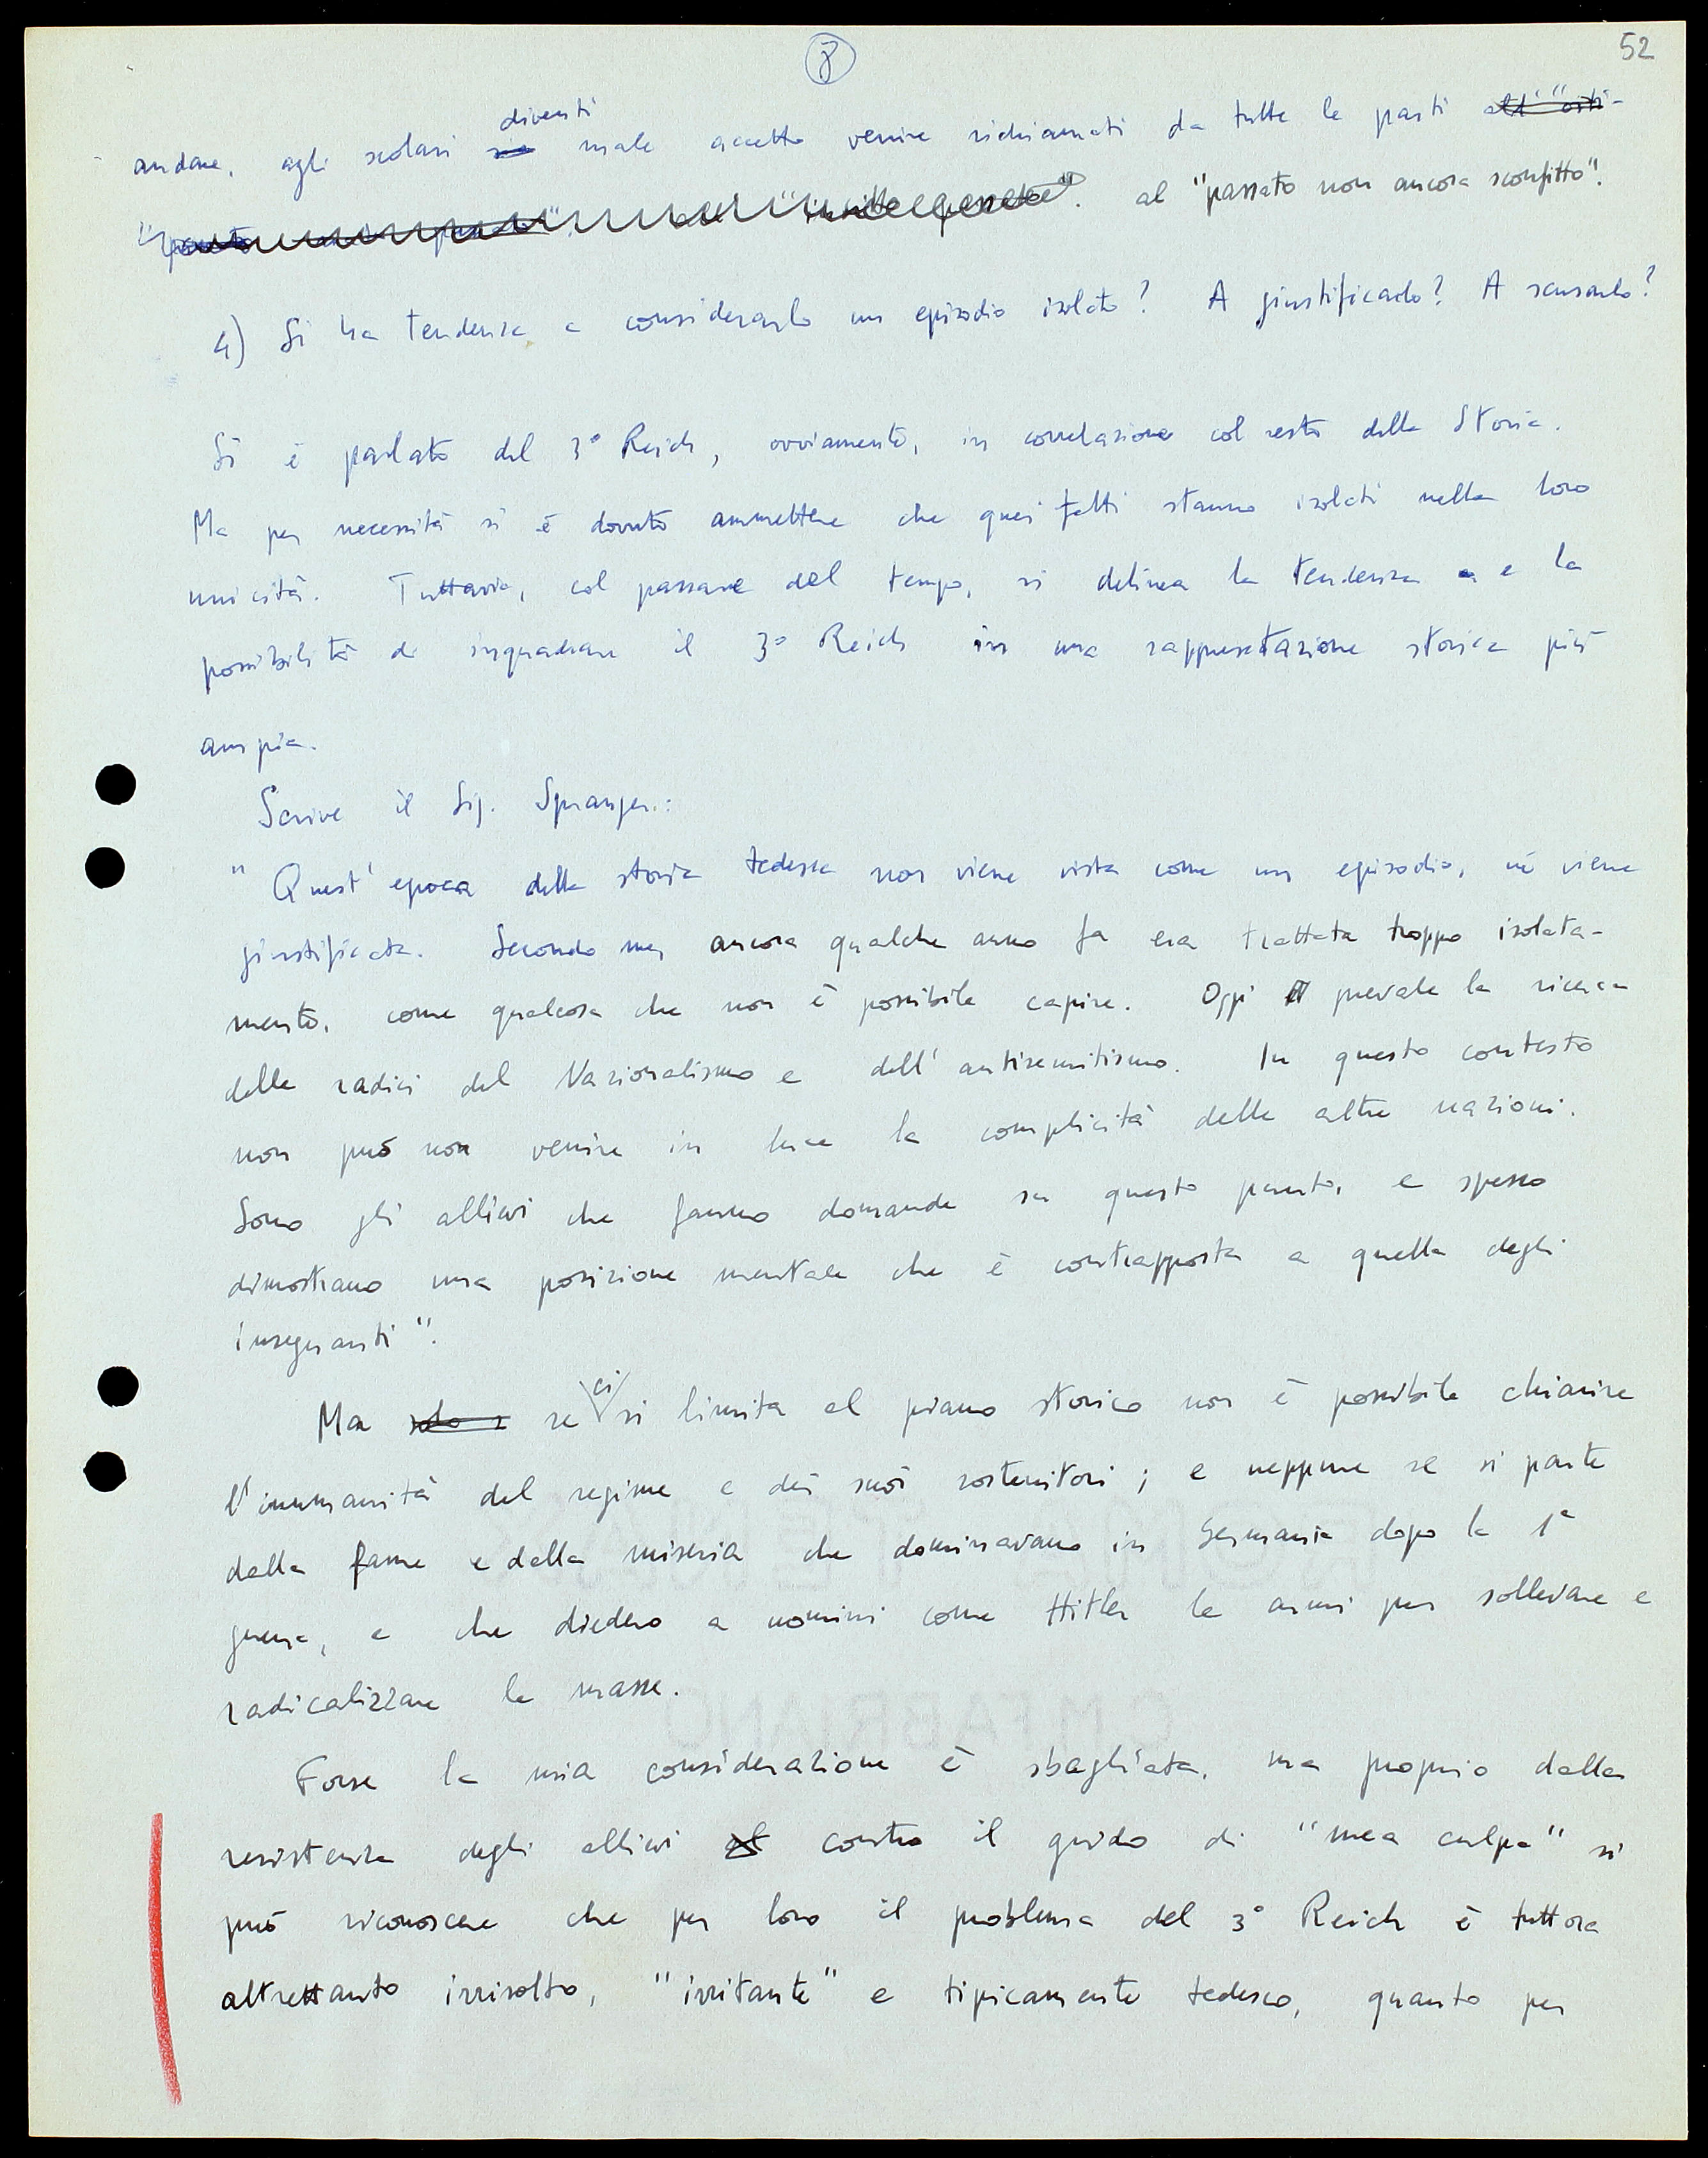 52
8
diventi
andare, agli scolari male accetto venire richiamati da tutte le parti
al "passato non ancora sconfitto".
4) Si ha tendenza a considerarlo un episodio isolato? A giustificarlo? A scusarlo?
Si è parlato del 3° Reich, ovviamente, in correlazione col resto della Storia.
Ma per necessità si è dovuto ammettere che quei fatti stanno isolati nella loro
unicità. Tuttavia, col passare del tempo, si delinea la tendenza e la
possibilità di inquadrare il 3° Reich in una rappresentazione storica più
ampia.
Scrive il Sig. Spranger:
"Quest'epoca della storia tedesca non viene vista come un episodio, né viene
giustificata. Secondo me, ancora qualche anno fa era trattata troppo isolata-
mente, come qualcosa che non è possibile capire. Oggi prevale la ricerca
delle radici del Nazionalismo e dell'antisemitismo. In questo contesto
non può non venire in luce la complicità delle altre nazioni.
Sono gli allievi che fanno domande su questo punto, e spesso
dimostrano una posizione mentale che è contrapposta a quella degli
insegnanti".
Ma se ci si limita al piano storico non è possibile chiarire
l'inumanità del regime e dei suoi sostenitori; e neppure se si parte
dalla fame e dalla miseria che dominavano in Germania dopo la 1ª
guerra, e che diedero a uomini come Hitler le armi per sollevare e
radicalizzare le masse.
Forse la mia considerazione è sbagliata, ma proprio dalla
resistenza degli allievi contro il grido di "mea culpa" si
può riconoscere che per loro il problema del 3° Reich è tuttora
altrettanto irrisolto, "irritante" e tipicamente tedesco, quanto per